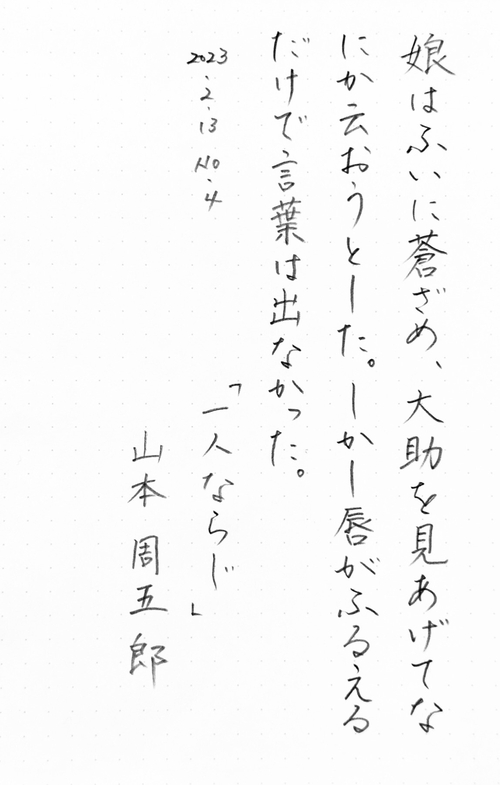 娘はふいに蒼ざめ、大助を見あげてな
にか云おうとした。しかし唇がふるえる
だけで言葉は出なかった。
2023.2.13 No.4
「一人ならじ」
山本周五郎